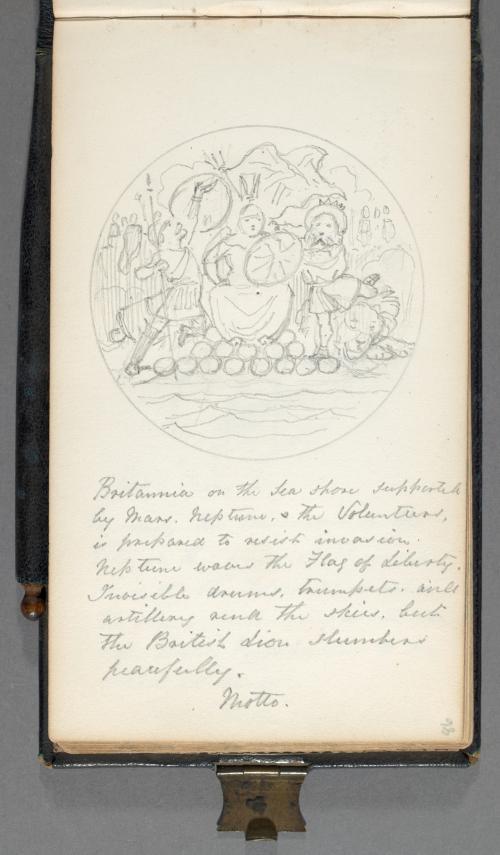 Britannia on the Sea shore supported
by Mars. Neptune, & the Volunteers,
is prepared to resist invasion.
Neptune waves the Flag of Liberty.
Invisible drums, trumpets, and
artillery rend the skies, but
the British Lion slumbers
peacefully.
Motto.